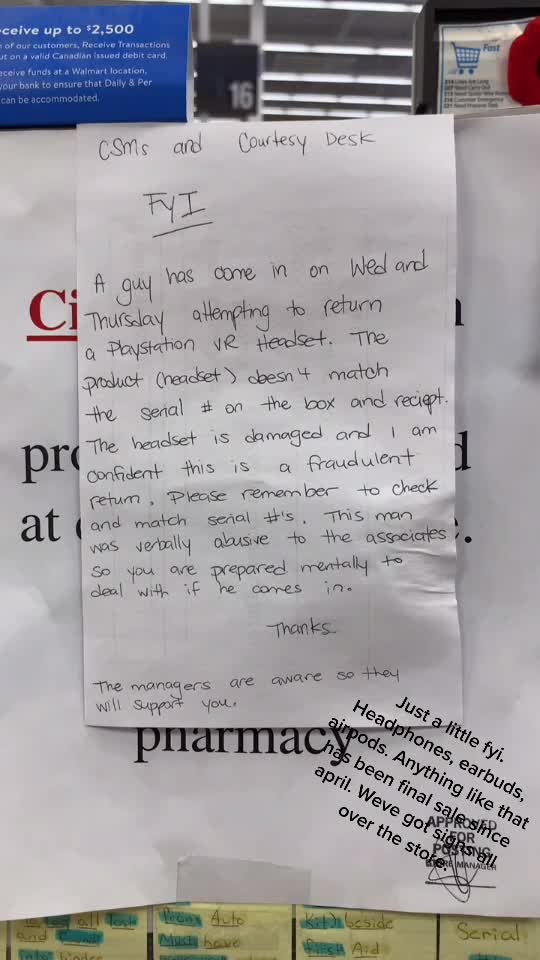 ceive up to $2,500
of our customers, Receive Transactions
on a valid Canadian issued debit card.
eceive funds at a Walmart location,
your bank to ensure that Daily & Per
can be accommodated.
16
Fast
CSMs and Courtesy Desk
FYI
A guy has come in on Wed and
Thursday attempting to return
a Playstation VR Headset. The
product (headset) doesn't match
the serial # on the box and reciept.
The headset is damaged and I am
confident this is a fraudulent
return. Please remember to check
and match serial #'s. This man
was verbally abusive to the associates
so you are prepared mentally to
deal with if he comes in.
Thanks
The managers are aware so they
will support you.
Ci
pro
d
at
.
pharmacy
Just a little fyi.
Headphones, earbuds,
airpods. Anything like that
has been final sale since
april. Weve got signs all
over the store.
APPROVED
FOR
POSTING
STORE MANAGER
all
and
Auto
Must have
Kit) beside
First Aid
Serial